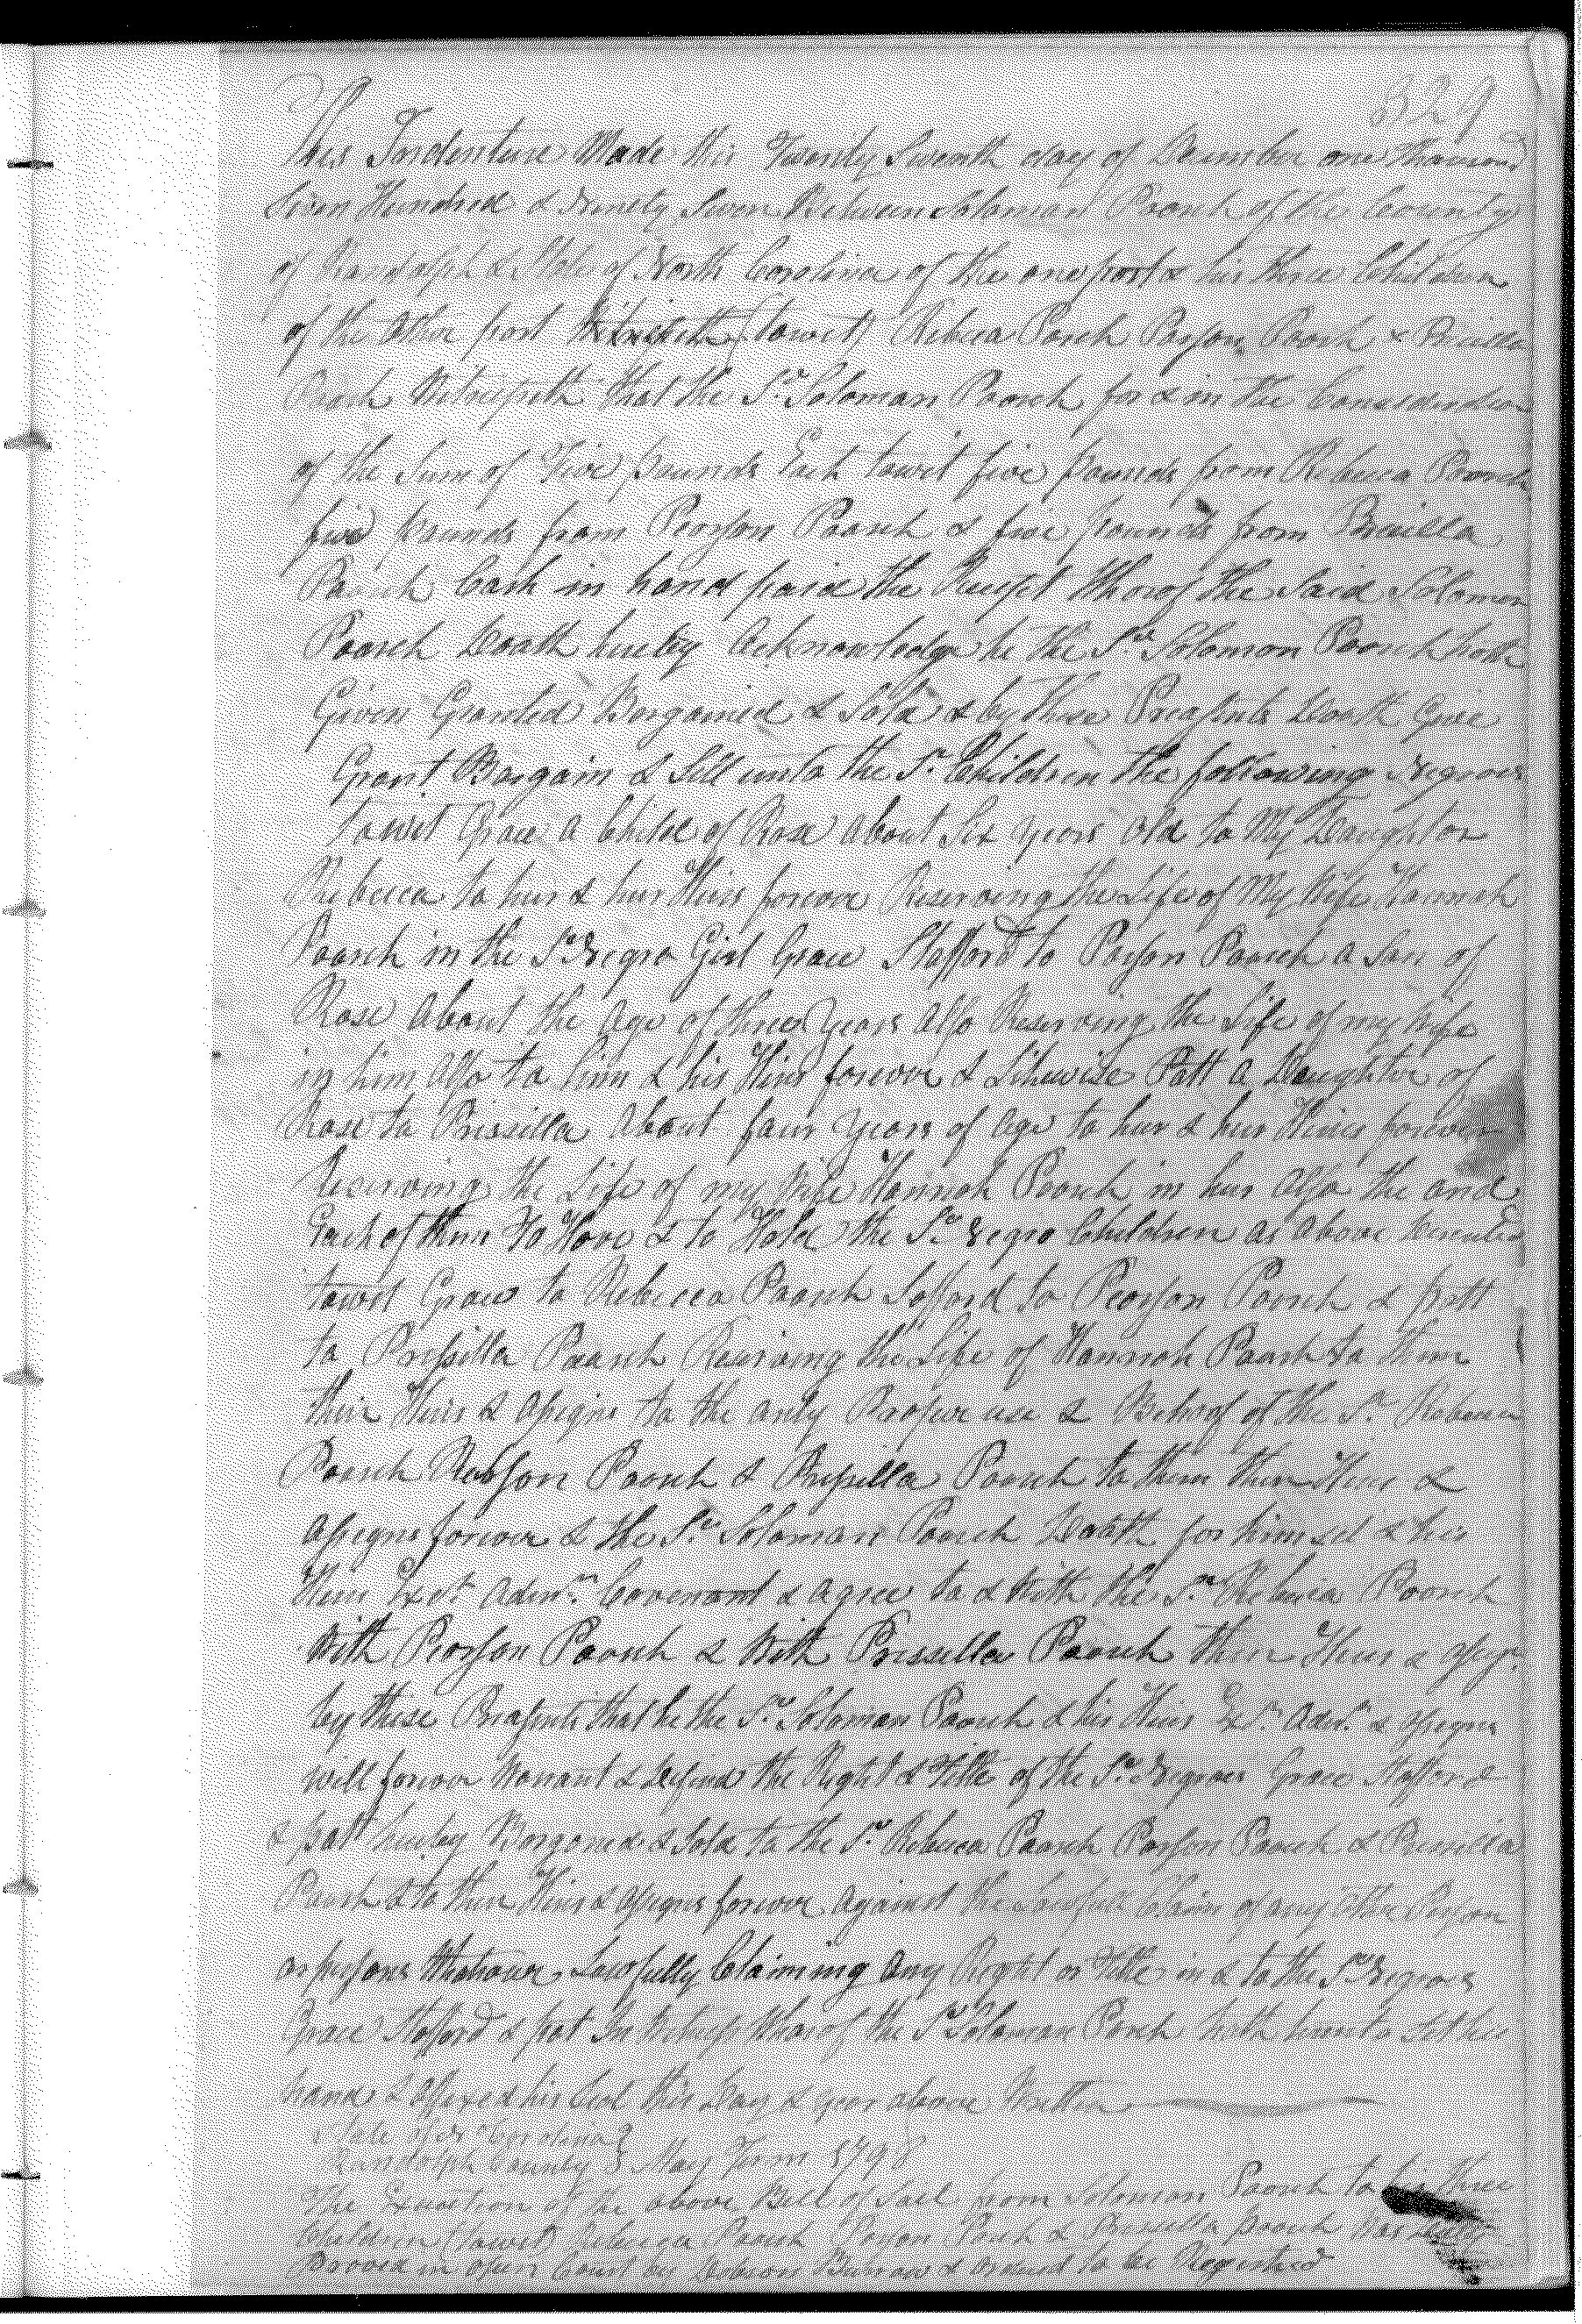 329
This Indenture Made this Twenty Seventh day of December one thousand
Seven Hundred & Ninety Seven Between Solomon Paarch of the County
of Randolph & State of North Carolina of the one part & his three Children
of the other part (towit) Rebeca Parch Parson Paarch & Pricilla
Paarch Witnesseth that the Sd. Solomon Paarch for & in the Consideration
of the Sum of Five pounds Each towit five pounds from Rebecca Paarch
five pounds from Pearson Paarch & five pounds from Pricilla
Paarch Cash in hand paid the Receipt Whereof the Said Solomon
Paarch Doath hereby Acknowledge he the Sd. Solomon Paarch hath
Given Granted Bargained & Sold & by these Preasents Doath Give
Grant Bargain & Sell unto the Sd. Children the following Negroes
towit Grace a Child of Rose about Six years old to My Daughter
Rebecca to hur & hur Heirs forever Reserving the Life of My Wife Hannah
Paarch in the Sd. Negro Girl Grace Stafford to Parson Paarch a Son of
Rose about the Age of three years Also Reserving the Life of my Wife
in him Also to him & his Heirs forever & Likewise Patt A Daughter of
Rose to Prissilla About four years of age to hur & hur Heirs forever
Reserving the Life of my Wife Hannah Paarch in hur Also the and
Each of them To Have & to Hold the Sd. Negro Children as above
towit Grace to Rebecca Paarch Safford to Pearson Paarch & patt
to Prissilla Paarch Reserving the Life of Hannah Paarch to them
their Heirs & Assigns to the only Proper use & Behoof of the Sd. Rebecca
Paarch Parson Paarch & Prissilla Paarch to them their Heirs &
Assigns forever & the Sd. Solomon Paarch Doath for him self & his
Heirs Exrs. Admrs. Covenant & agree to & With the Sd. Rebecca Paarch
With Pearson Paarch & With Prissilla Paarch their Heirs & Assigs.
by these Presents that he the Sd. Solomon Paarch & his Heirs Exrs. Admrs. & Assigns
will forever Warrant & Defend the Right & Title of the Sd. Negroes Grace Stafford
& patt hereby Bargoned & Sold to the Sd. Rebecca Paarch Parson Paarch & Pricilla
Paarch & to their Heirs & Assigns forever against the Lawfull Claim of any Other Person
or persons Lawfully Claiming any Right or Title in & to the Sd. Negroes
Grace Stafford & pat In Witness Whereof the Sd. Solomon Parch hath hereunto Set his
hand & Affixed his Seal this Day & year above Written
State of No. Carolina
Randolph County } May Term 1798
The Execution of the above Bill of Sail from Solomon Paarch to his three
Children (towit) Rebecca Paarch Parson Parch & Prissilla Paarch was
Proved in open Court by & ordered to be Registered